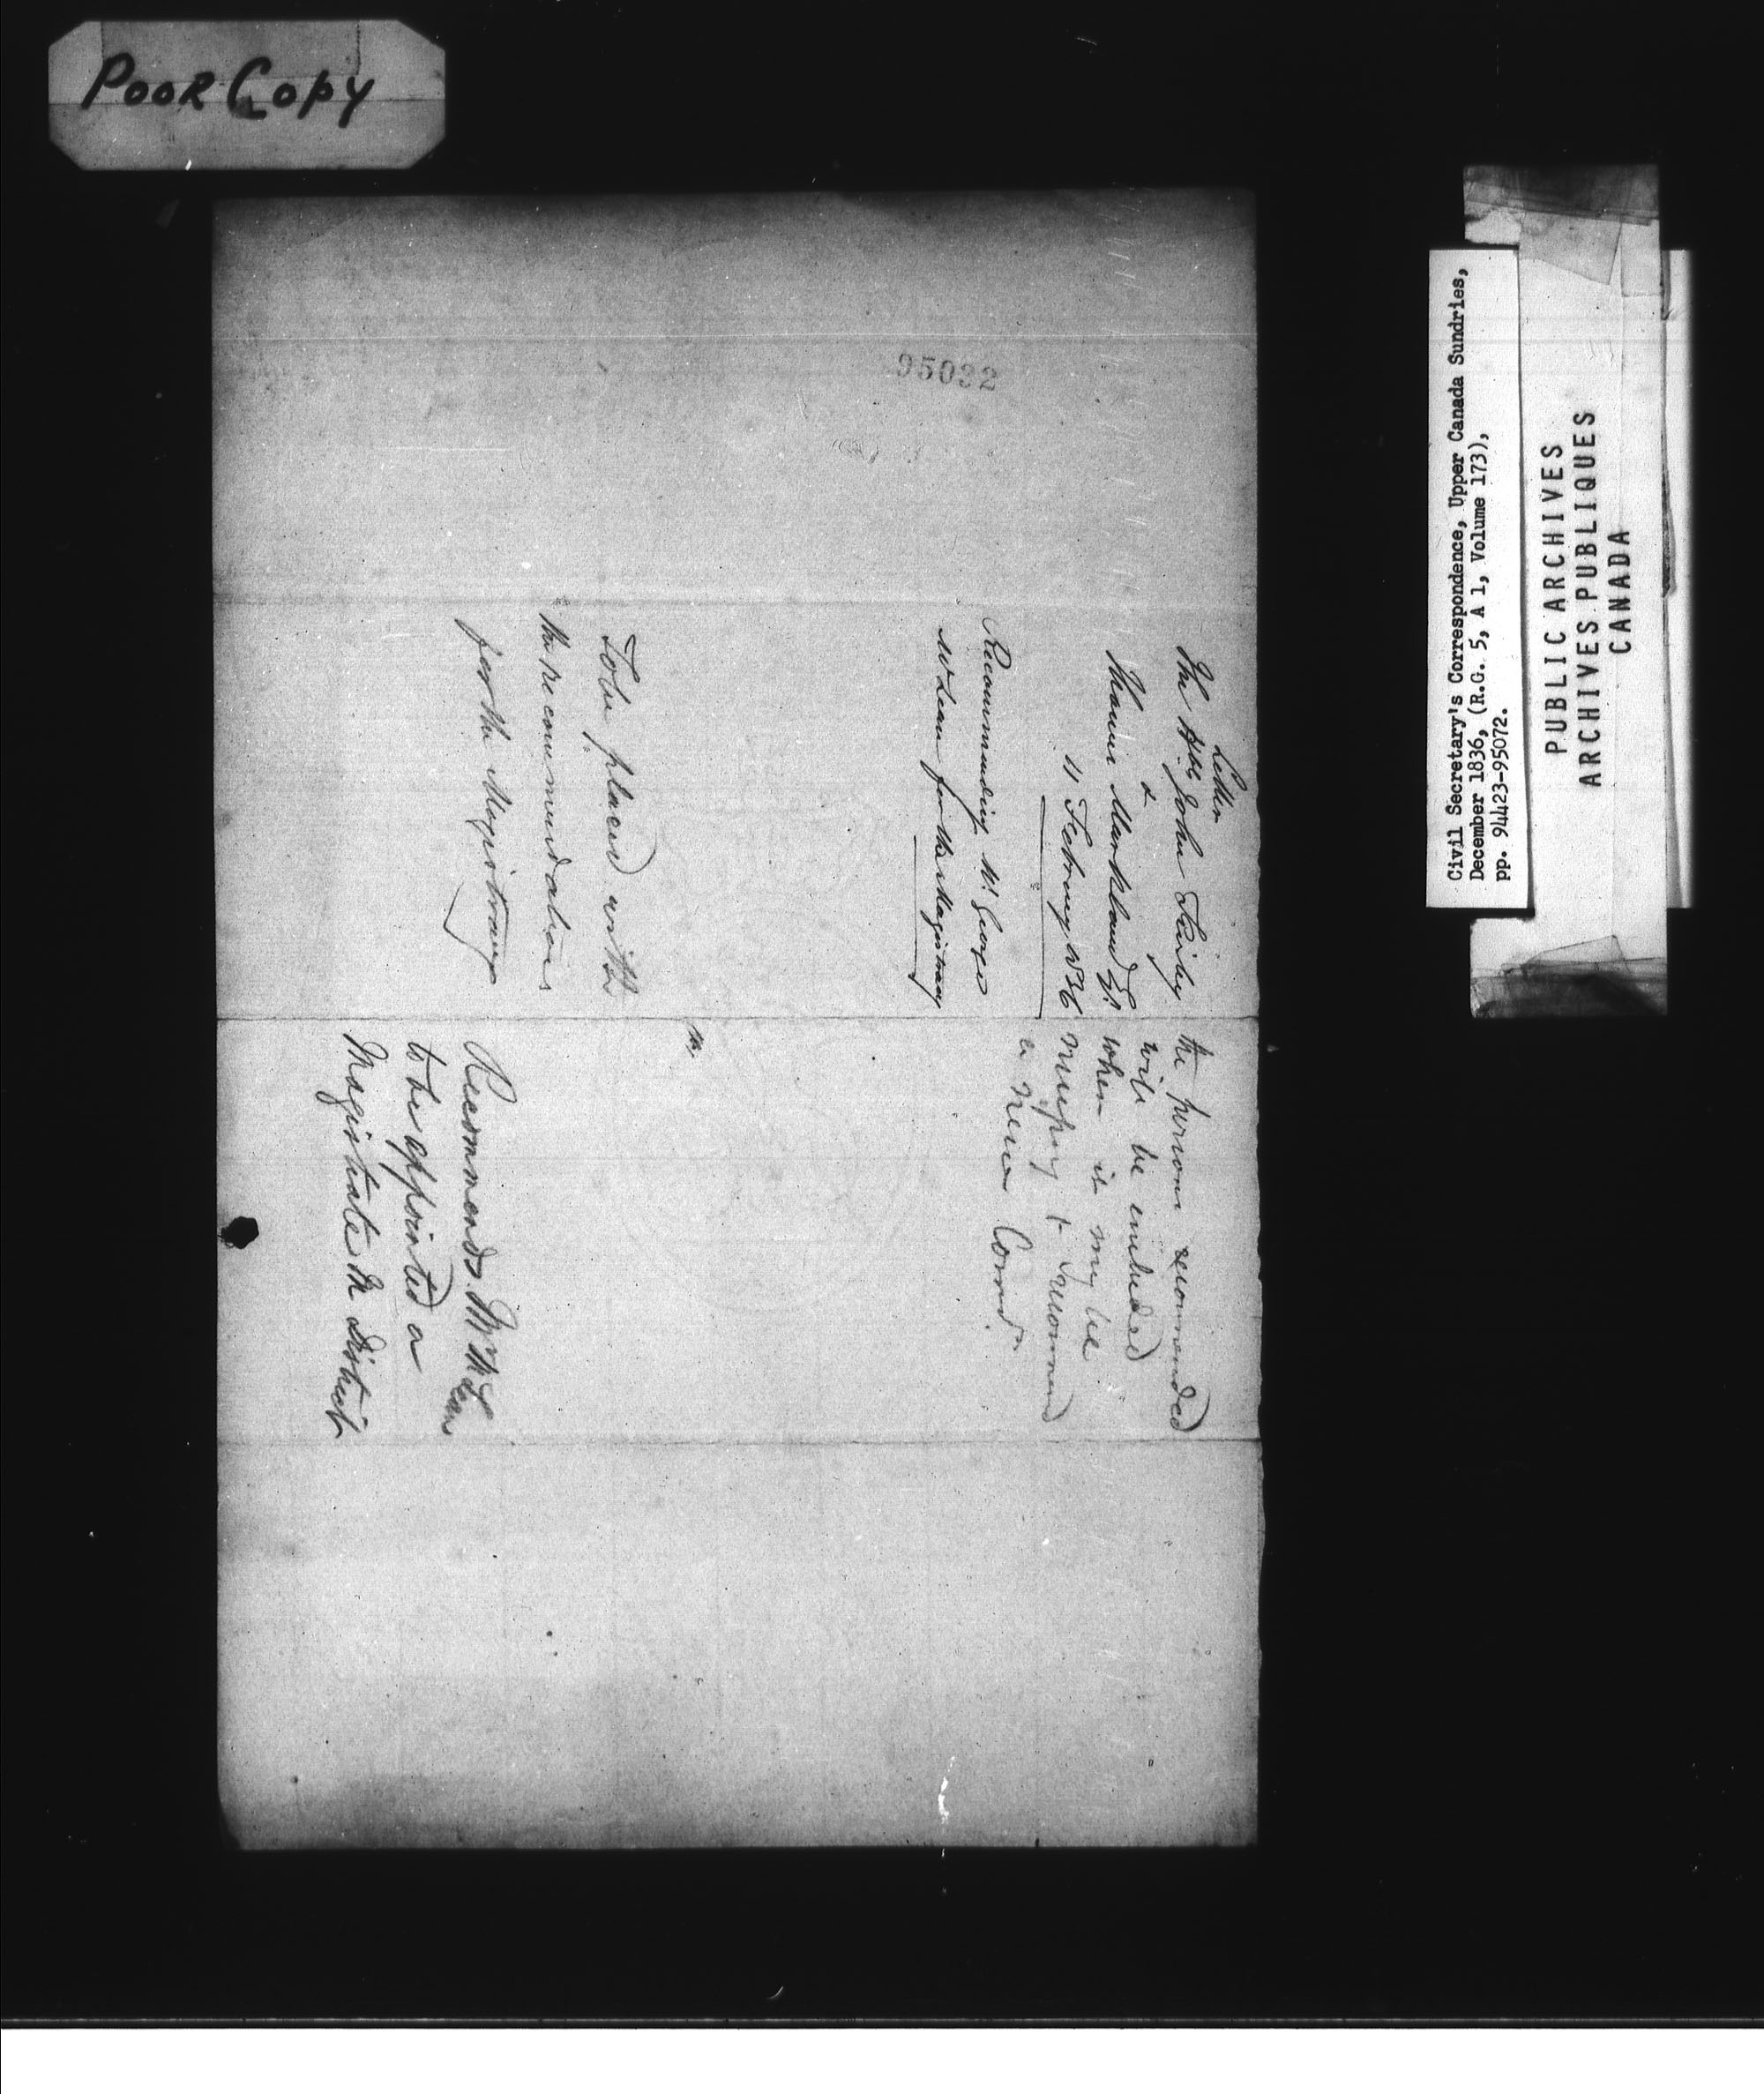 POOR COPY
95032
Letter
The Hble John Kirby
&
Thomas Markland Esq.
11 February 1836
Recommending Mr. George
McLean for the Magistracy
To be placed with
the recommendations
for the Magistracy
the person recommended
will be included
when it may be
necessary to recommend
a new Comm.
Recommends Mr McLean
to be appointed a
Magistrate M. District
Civil Secretary's Correspondence, Upper Canada Sundries,
December 1836, (R.G. 5, A 1, Volume 173),
pp. 94423-95072.
PUBLIC ARCHIVES
ARCHIVES PUBLIQUES
CANADA